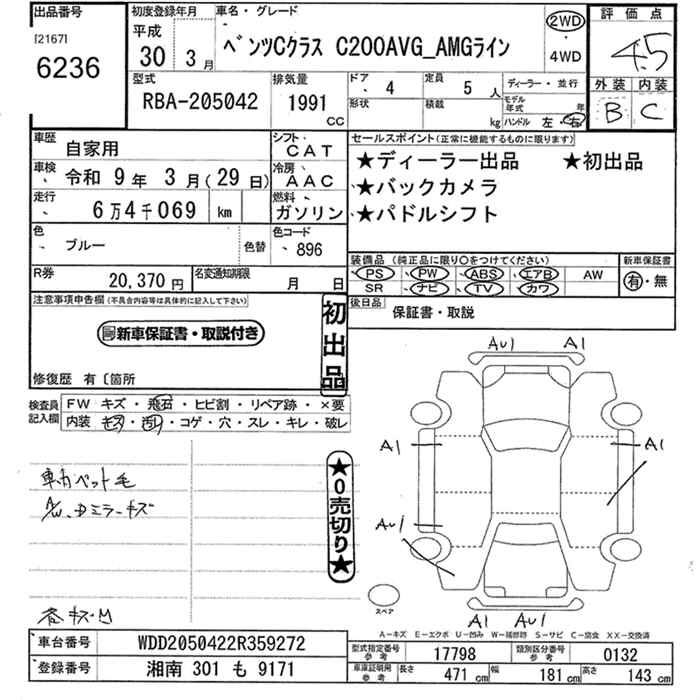 出品番号
[2167]
6236
初度登録年月
平成
30年 3月
車名・グレード
ベンツCクラス C200AVG_AMGライン
2WD
・
4WD
評価点
4.5
外装 内装
B C
型式
RBA-205042
排気量
1991 CC
ドア
4
定員
5 人
形状
積載
kg
ディーラー・並行
モデル年式 年
ハンドル 左・右
車歴
自家用
シフト
CAT
車検
令和 9年 3月(29日)
冷房
AAC
走行
6万4千069 km
燃料
ガソリン
色
ブルー
色替
色コード
896
R券
20,370円
名変通知期限
月 日
セールスポイント(正常に機能するものに限ります)
★ディーラー出品 ★初出品
★バックカメラ
★パドルシフト
装備品(純正品に限り○をつけてください)
PS PW ABS エアB AW
SR ナビ TV カワ
新車保証書
有・無
後日品
保証書・取説
注意事項申告欄(不具合内容等は具体的に記入して下さい)
新車保証書・取説付き
初出品
修復歴 有〔箇所
検査員記入欄
FW キズ・飛石・ヒビ割・リペア跡・×要
内装 キズ・汚れ・コゲ・穴・スレ・キレ・破レ
車内ペット毛
A/W、ドミラーキズ
★0売切り★
AU1 A1
A1 A1
AU1
A1 AU1
スペア
A-キズ E-エクボ U-凹み W-補修跡 S-サビ C-腐食 XX-交換済
車台番号
WDD2050422R359272
登録番号
湘南 301 も 9171
型式指定番号
参考
17798
類別区分番号
参考
0132
車庫証明用
参考
長さ 471 cm 幅 181 cm 高さ 143 cm